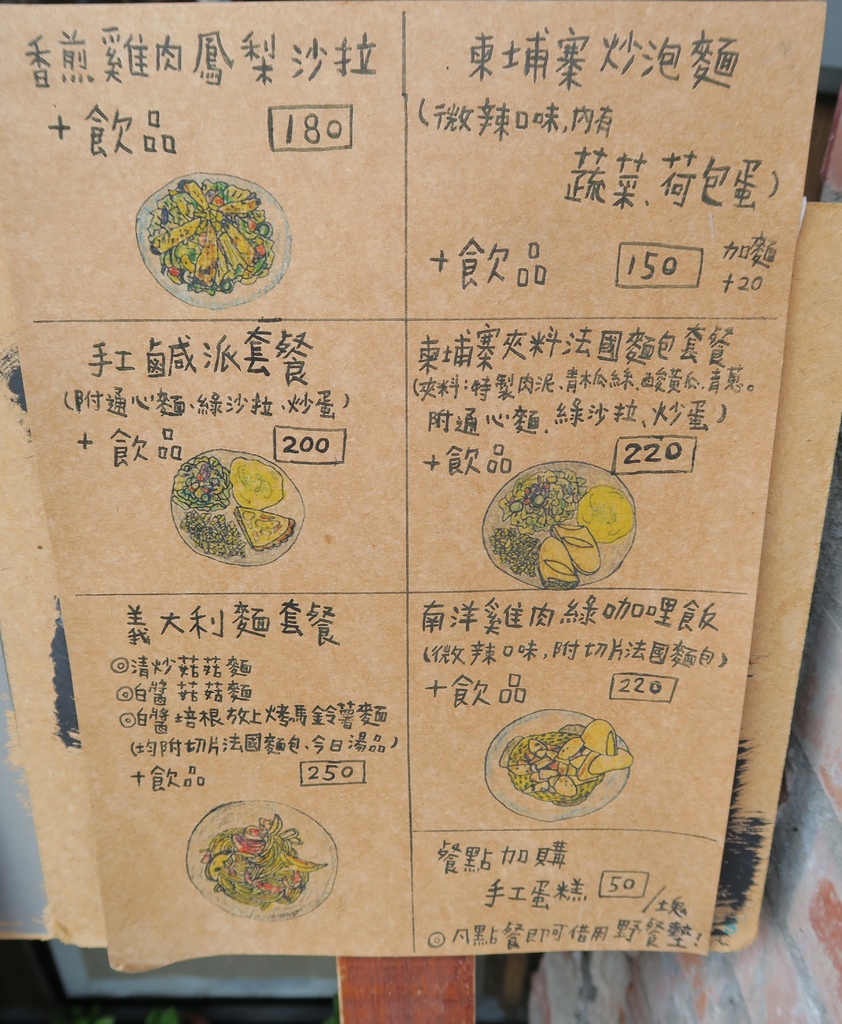 香煎雞肉鳳梨沙拉
+飲品 180
柬埔寨炒泡麵
(微辣口味,內有
蔬菜、荷包蛋)
+飲品 150 加麵
+20
手工鹹派套餐
(附通心麵、綠沙拉、炒蛋)
+飲品 200
柬埔寨夾料法國麵包套餐
(夾料:特製肉泥、青木瓜絲、酸黃瓜、青蔥。
附通心麵、綠沙拉、炒蛋)
+飲品 220
義大利麵套餐
◎清炒菇菇麵
◎白醬菇菇麵
◎白醬培根放上烤馬鈴薯麵
(均附切片法國麵包、今日湯品)
+飲品 250
南洋雞肉綠咖哩飯
(微辣口味,附切片法國麵包)
+飲品 220
餐點加購
手工蛋糕 50/塊
◎凡點餐即可借用野餐墊!